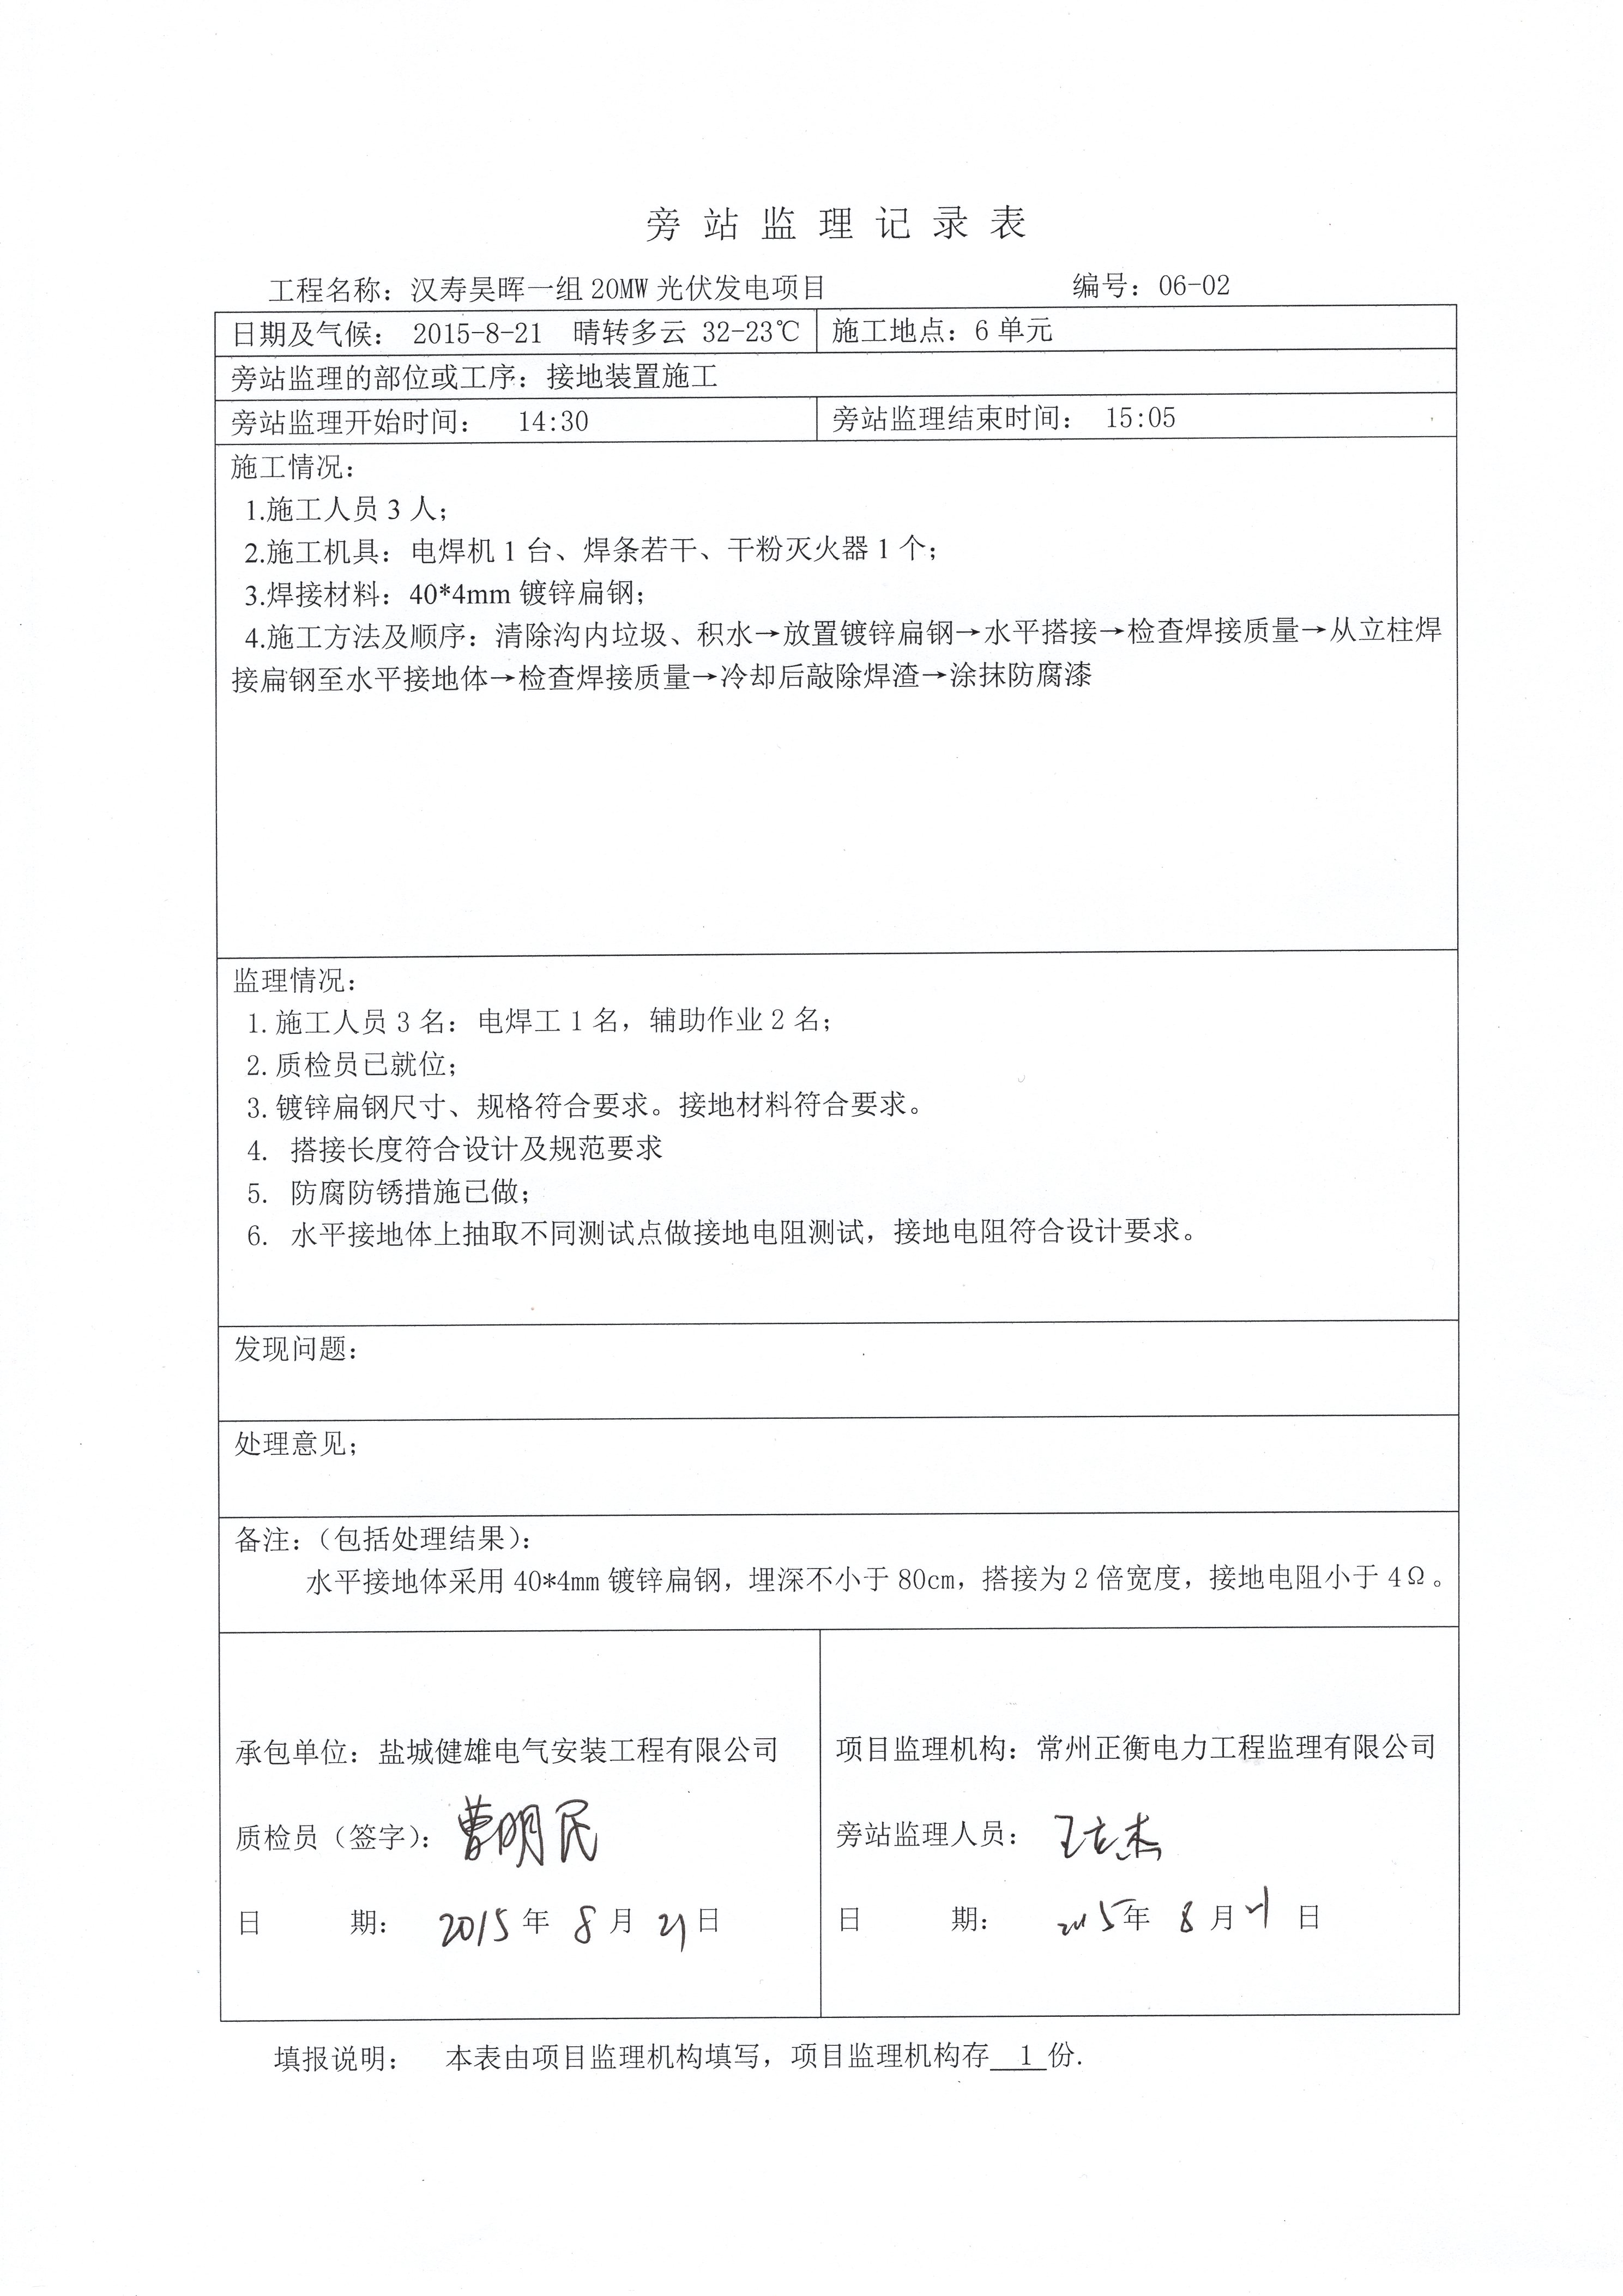 旁站监理记录表
工程名称：汉寿昊晖一组20MW光伏发电项目 编号：06-02
日期及气候： 2015-8-21 晴转多云 32-23℃ 施工地点：6单元
旁站监理的部位或工序：接地装置施工
旁站监理开始时间： 14:30 旁站监理结束时间： 15:05
施工情况：
1.施工人员3人；
2.施工机具：电焊机1台、焊条若干、干粉灭火器1个；
3.焊接材料：40*4mm镀锌扁钢；
4.施工方法及顺序：清除沟内垃圾、积水→放置镀锌扁钢→水平搭接→检查焊接质量→从立柱焊
接扁钢至水平接地体→检查焊接质量→冷却后敲除焊渣→涂抹防腐漆
监理情况：
1.施工人员3名：电焊工1名，辅助作业2名；
2.质检员已就位；
3.镀锌扁钢尺寸、规格符合要求。接地材料符合要求。
4. 搭接长度符合设计及规范要求
5. 防腐防锈措施已做；
6. 水平接地体上抽取不同测试点做接地电阻测试，接地电阻符合设计要求。
发现问题：
处理意见；
备注：（包括处理结果）：
水平接地体采用40*4mm镀锌扁钢，埋深不小于80cm，搭接为2倍宽度，接地电阻小于4Ω。
承包单位：盐城健雄电气安装工程有限公司 项目监理机构：常州正衡电力工程监理有限公司
质检员（签字）：曹明民 旁站监理人员：王立杰
日 期： 2015年 8月 21日 日 期： 2015年 8月 21日
填报说明： 本表由项目监理机构填写，项目监理机构存 1 份.